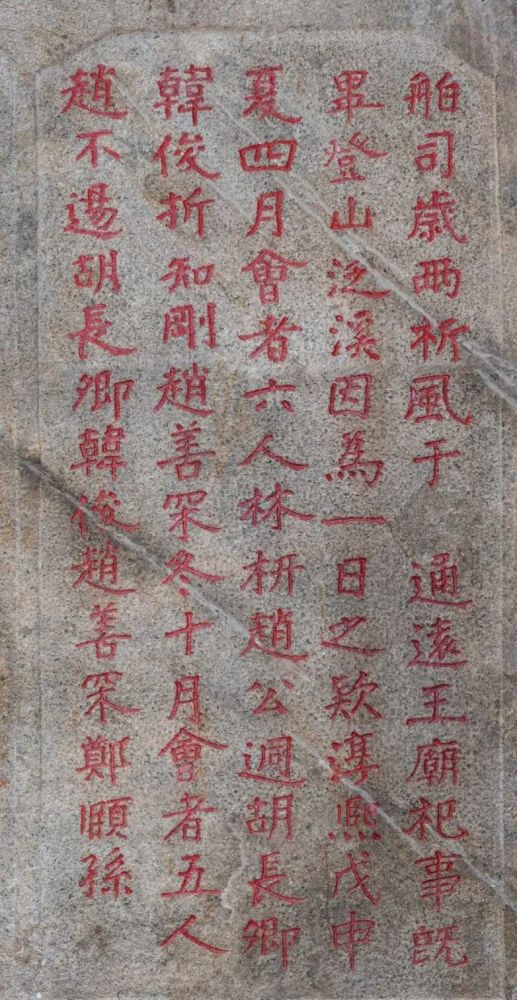 舶司歲兩祈風于 通遠王廟祀事既
畢登山泛溪因為一日之欵淳熈戊申
夏四月會者六人林枅趙公逥胡長卿
韓俊折知剛趙善罙冬十月會者五人
趙不逷胡長卿韓俊趙善罙鄭頤孫